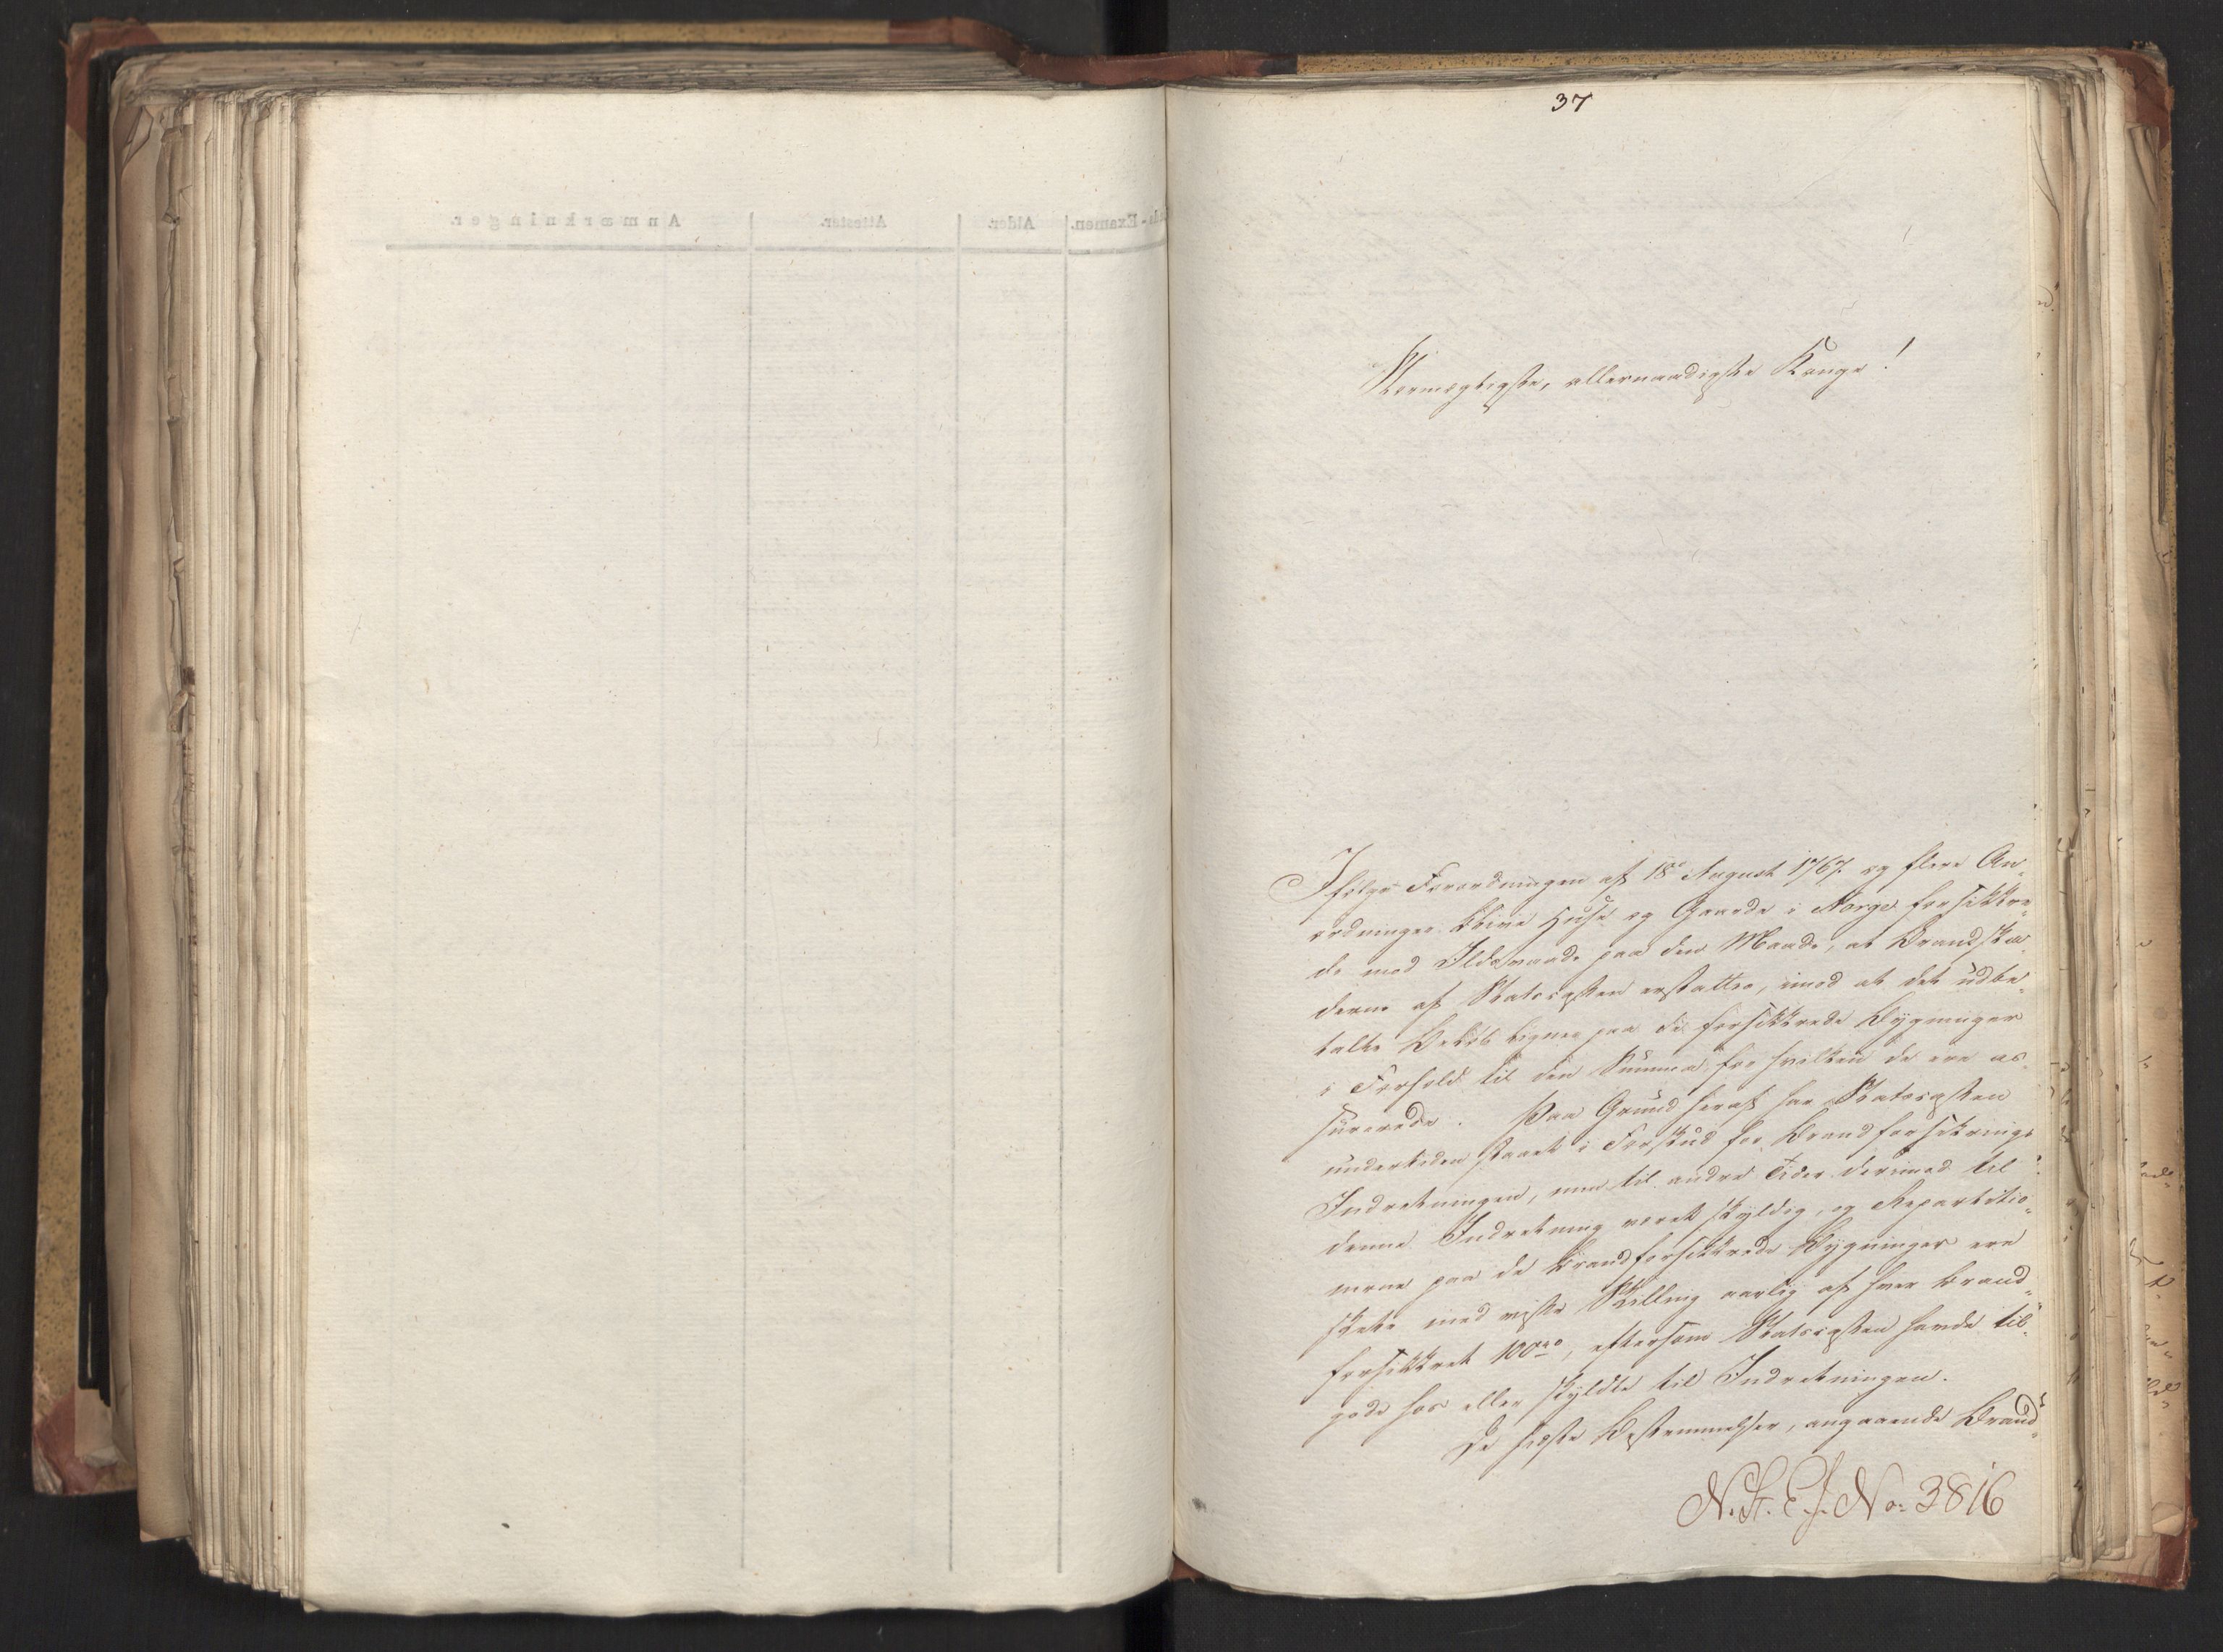 37
Stormægtigste, allernaadigste Konge!
Ifølge Forordningen af 18de August 1767. og flere An„
ordninger blive Huse og Gaarde i Norge forsikkre„
de mod Ildsvaade paa den Maade, at Brandska„
derne af Statscassen erstattes, imod at det udbe„
talte Beløb lignes paa de forsikkrede Bygninger
i Forhold til den Summa for hvilken de ere as„
surerede. Paa Grund heraf har Statscassen
undertiden staaet i Forskud for Brandforsikrings
Indretningen, men til andre Tider derimod til
denne Indretning været skyldig, og Repartitio„
nerne paa de brandforsikkrede Bygninger ere
skete med visse Skilling aarlig af hver brand„
forsikkret 100rdr, eftersom Statscassen havde til„
gode hos eller skyldte til Indretningen.
De sidste Bestemmelser, angaaende Brand„
N. St. E. J. No: 3816
Anmærkninger.
Attester.
Alder.
Examen.